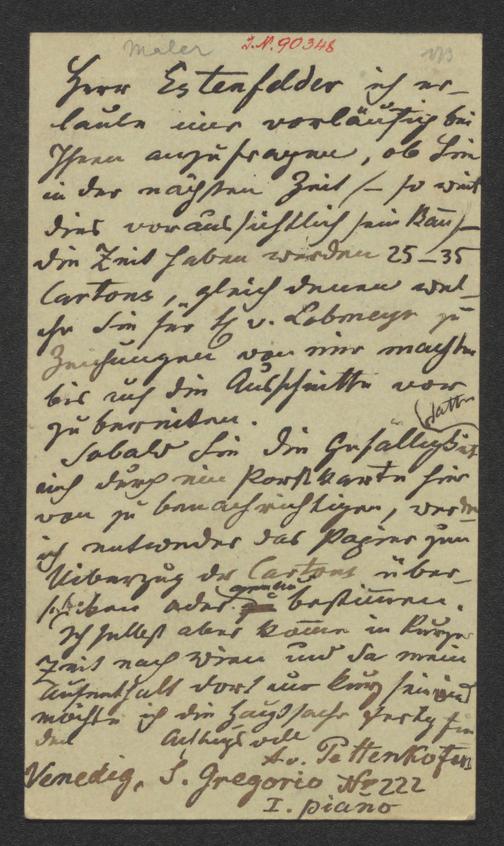 Maler I.N. 90348 173
Herr Estenfelder ich er-
laube mir vorläufig bei
Ihnen anzufragen, ob Sie
in der nächsten Zeit /– so wird
dies voraussichtlich sein
die Zeit haben werden 25–35
Cartons, gleich denen wel-
che Sie für H v. Lobmeyr zu
Zeichnungen von mir machten
bis auf die Ausschnitte vor
zubereiten. hatten
Sobald Sie die Gefälligkeit
mich durch eine Postkarte hier
von zu benachrichtigen, werde
ich entweder das Papier zum
Ueberzug der Cartons über-
schicken oder genau bestimmen.
Ich selbst aber komme in kurzer
Zeit nach Wien und da mein
Aufenthalt dort nur kurz sein wird
möchte ich die Hauptsache fertig fin
den Achtungsvoll
A. v. Pettenkofen
Venedig, S. Gregorio No 222
I. piano